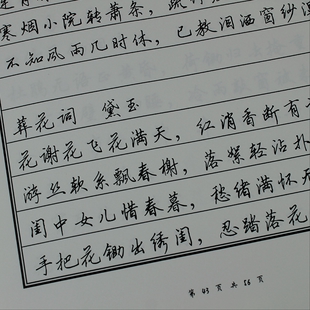 寒烟小院转萧条,疏
不知风雨几时休,已教泪洒窗纱湿
葬花词 黛玉
花谢花飞花满天,红消香断有
游丝软系飘春榭,落絮轻沾扑
闺中女儿惜春暮,愁绪满怀无
手把花锄出绣闺,忍踏落花
第 43 页 共 56 页